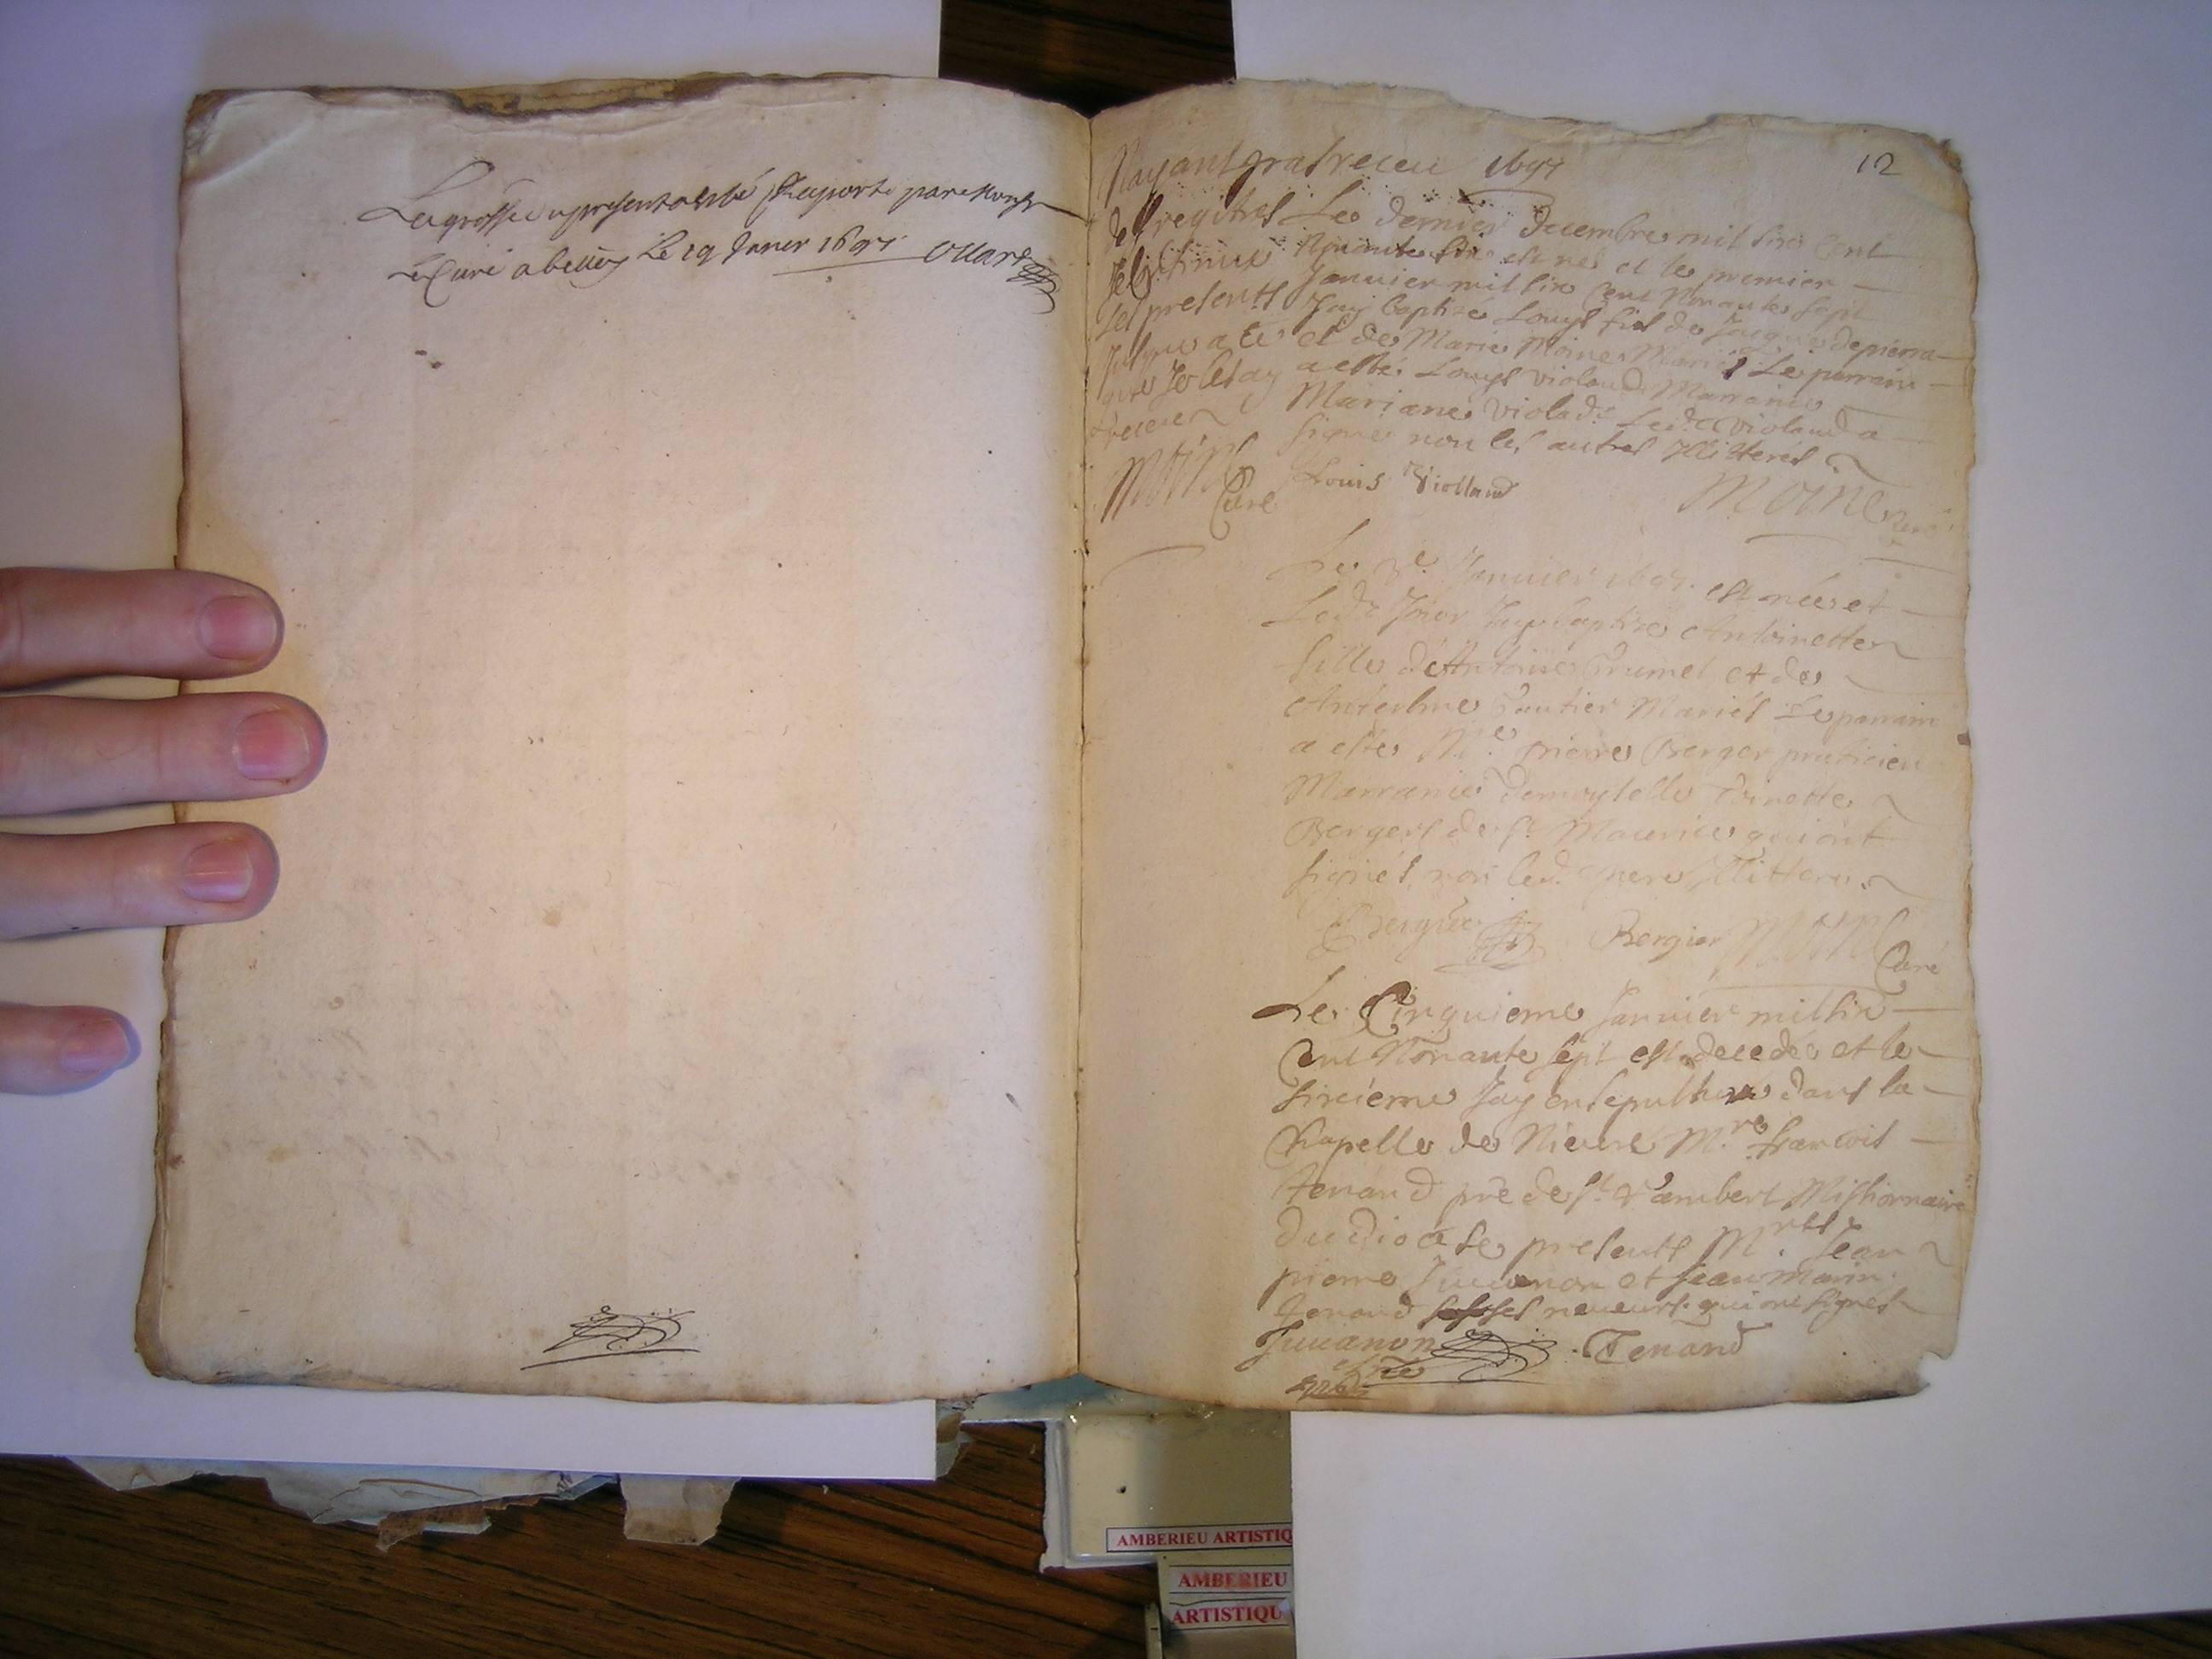 La grosse du present a esté Raporté par
le Curé a belley Le 19 Janer 1697
Nayant pas receu 1697
12
de regitres
Le dernier decembre mil six Cent
Nonante six est né et le premier
les presents
Janvier mil six Cent Nonante sept
Jay Baptisé Louys fils de Jacques depierra
et de Marie Moine Mariés Le parrain
a esté Louys violand Marraine
Mariane violad Led. violand a
signé non les autres Illiterés
Moine
Curé
Louis Violland
Moine Curé
Le 3e Janvier 1697 est née et
Led. Jour Jay baptisé Antoinette
fille d'Antoine Trumel et de
Antelme Gautier Mariés Le parrain
a esté Me pierre Berger praticien
Marraine Demoyselle Toinette
Bergers de St Maurice qui ont
signés non led. pere Illitteré.
Bergier
Bergier
Moine
Curé
Le Cinquieme Janvier mil six
Cent Nonante sept est decedé et le
sixieme Jay ensepulturé dans la
Chapelle de Nievre Mre francois
Tenand pre de St Rambert Missionnaire
du dioœse presents Mres Jean
pierre Juvanon et Jean Marin
Tenand ses neveurs qui ont signés
Juuanon
Tenand
AMBERIEU ARTISTIQ
AMBERIEU
ARTISTIQU